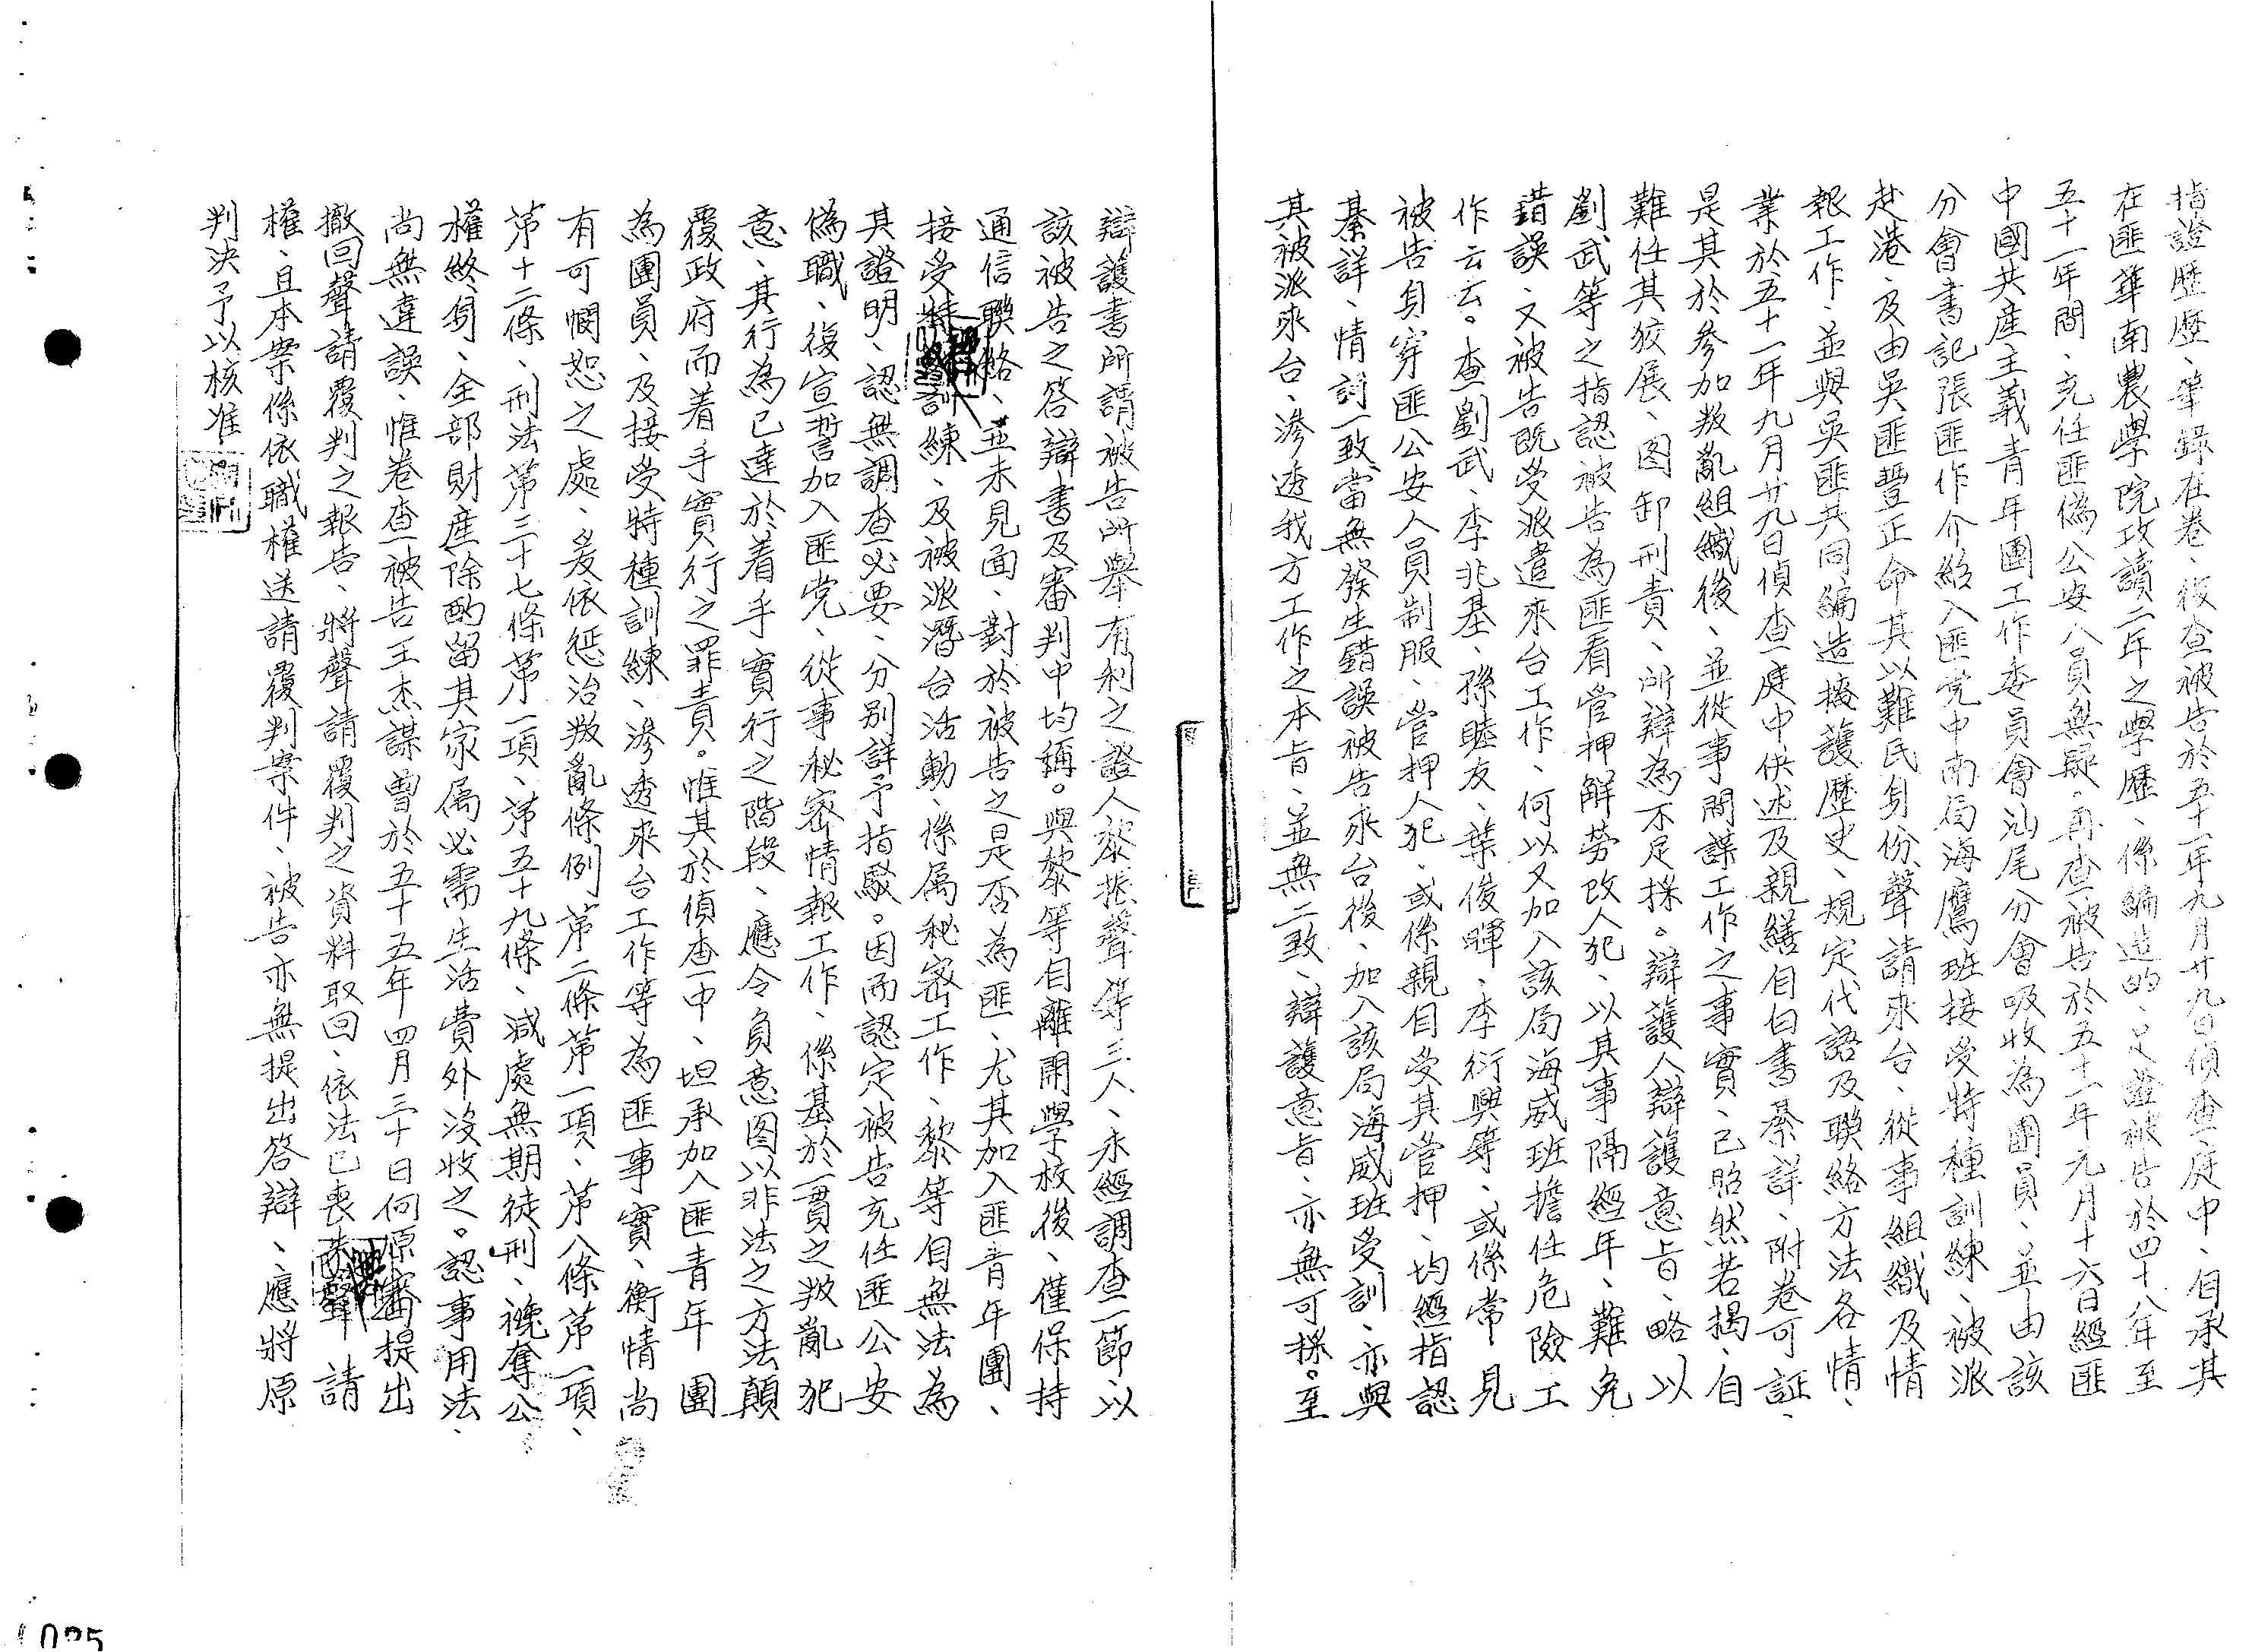 指證歷歷、筆錄在卷、復查被告於五十一年九月廿九日偵查庭中、自承其
在匪華南農學院攻讀二年之學歷、係編造的、足證被告於四十八年至
五十一年間、充任匪偽公安人員無疑、再查被告於五十一年元月十六日經匪
中國共產主義青年團工作委員會汕尾分會吸收為團員、並由該
分會書記張匪作介紹入匪党中南局海鷹班接受特種訓練、被派
赴港、及由吳匪豐正命其以難民身份、聲請來台、從事組織及情
報工作、並與吳匪共同編造掩護歷史、規定代語及聯絡方法各情、
業於五十一年九月廿九日偵查庭中供述及親繕自白書綦詳、附卷可証、
是其於參加叛亂組織後、並從事間諜工作之事實、已昭然若揭、自
難任其狡展、图卸刑責、所辯為不足採。辯護人辯護意旨、略以
劉武等之指認被告為匪看管押解勞改人犯、以其事隔經年、難免
錯誤、又被告既受派遣來台工作、何以又加入該局海威班擔任危險工
作云云。查劉武、李兆基、孫睦友、葉俊暉、李衍興等、或係常見
被告身穿匪公安人員制服、管押人犯、或係親自受其管押、均經指認
綦詳、情詞一致、當無發生錯誤、被告來台後、加入該局海威班受訓、亦與
其被派來台、滲透我方工作之本旨、並無二致、辯護意旨、亦無可採。至
辯護書所謂被告所舉有利之證人黎振聲等三人、未經調查一節、以
該被告之答辯書及審判中均稱。與黎等自離開學校後、僅保持
通信聯絡、並未見面、對於被告之是否為匪、尤其加入匪青年團、
接受特種訓練、及被派潛台活動、係属秘密工作、黎等自無法為
其證明、認無調查必要、分别詳予指駁。因而認定被告充任匪公安
偽職、復宣誓加入匪党、從事秘密情報工作、係基於一貫之叛亂犯
意、其行為已達於着手實行之階段、應令負意图以非法之方法顛
覆政府而着手實行之罪責。惟其於偵查中、坦承加入匪青年團
為團員、及接受特種訓練、滲透來台工作等為匪事實、衡情尚
有可憫恕之處、爰依惩治叛亂條例第二條第一項、第八條第一項、
第十二條、刑法第三十七條第一項、第五十九條、減處無期徒刑、褫奪公
權終身、全部財產除酌留其家属必需生活費外沒收之。認事用法、
尚無違誤、惟卷查被告王杰謀曾於五十五年四月三十日向原審提出
撤回聲請覆判之報告、將聲請覆判之資料取回、依法已喪失聲請
權、且本案係依職權送請覆判案件、被告亦無提出答辯、應將原
判決予以核准